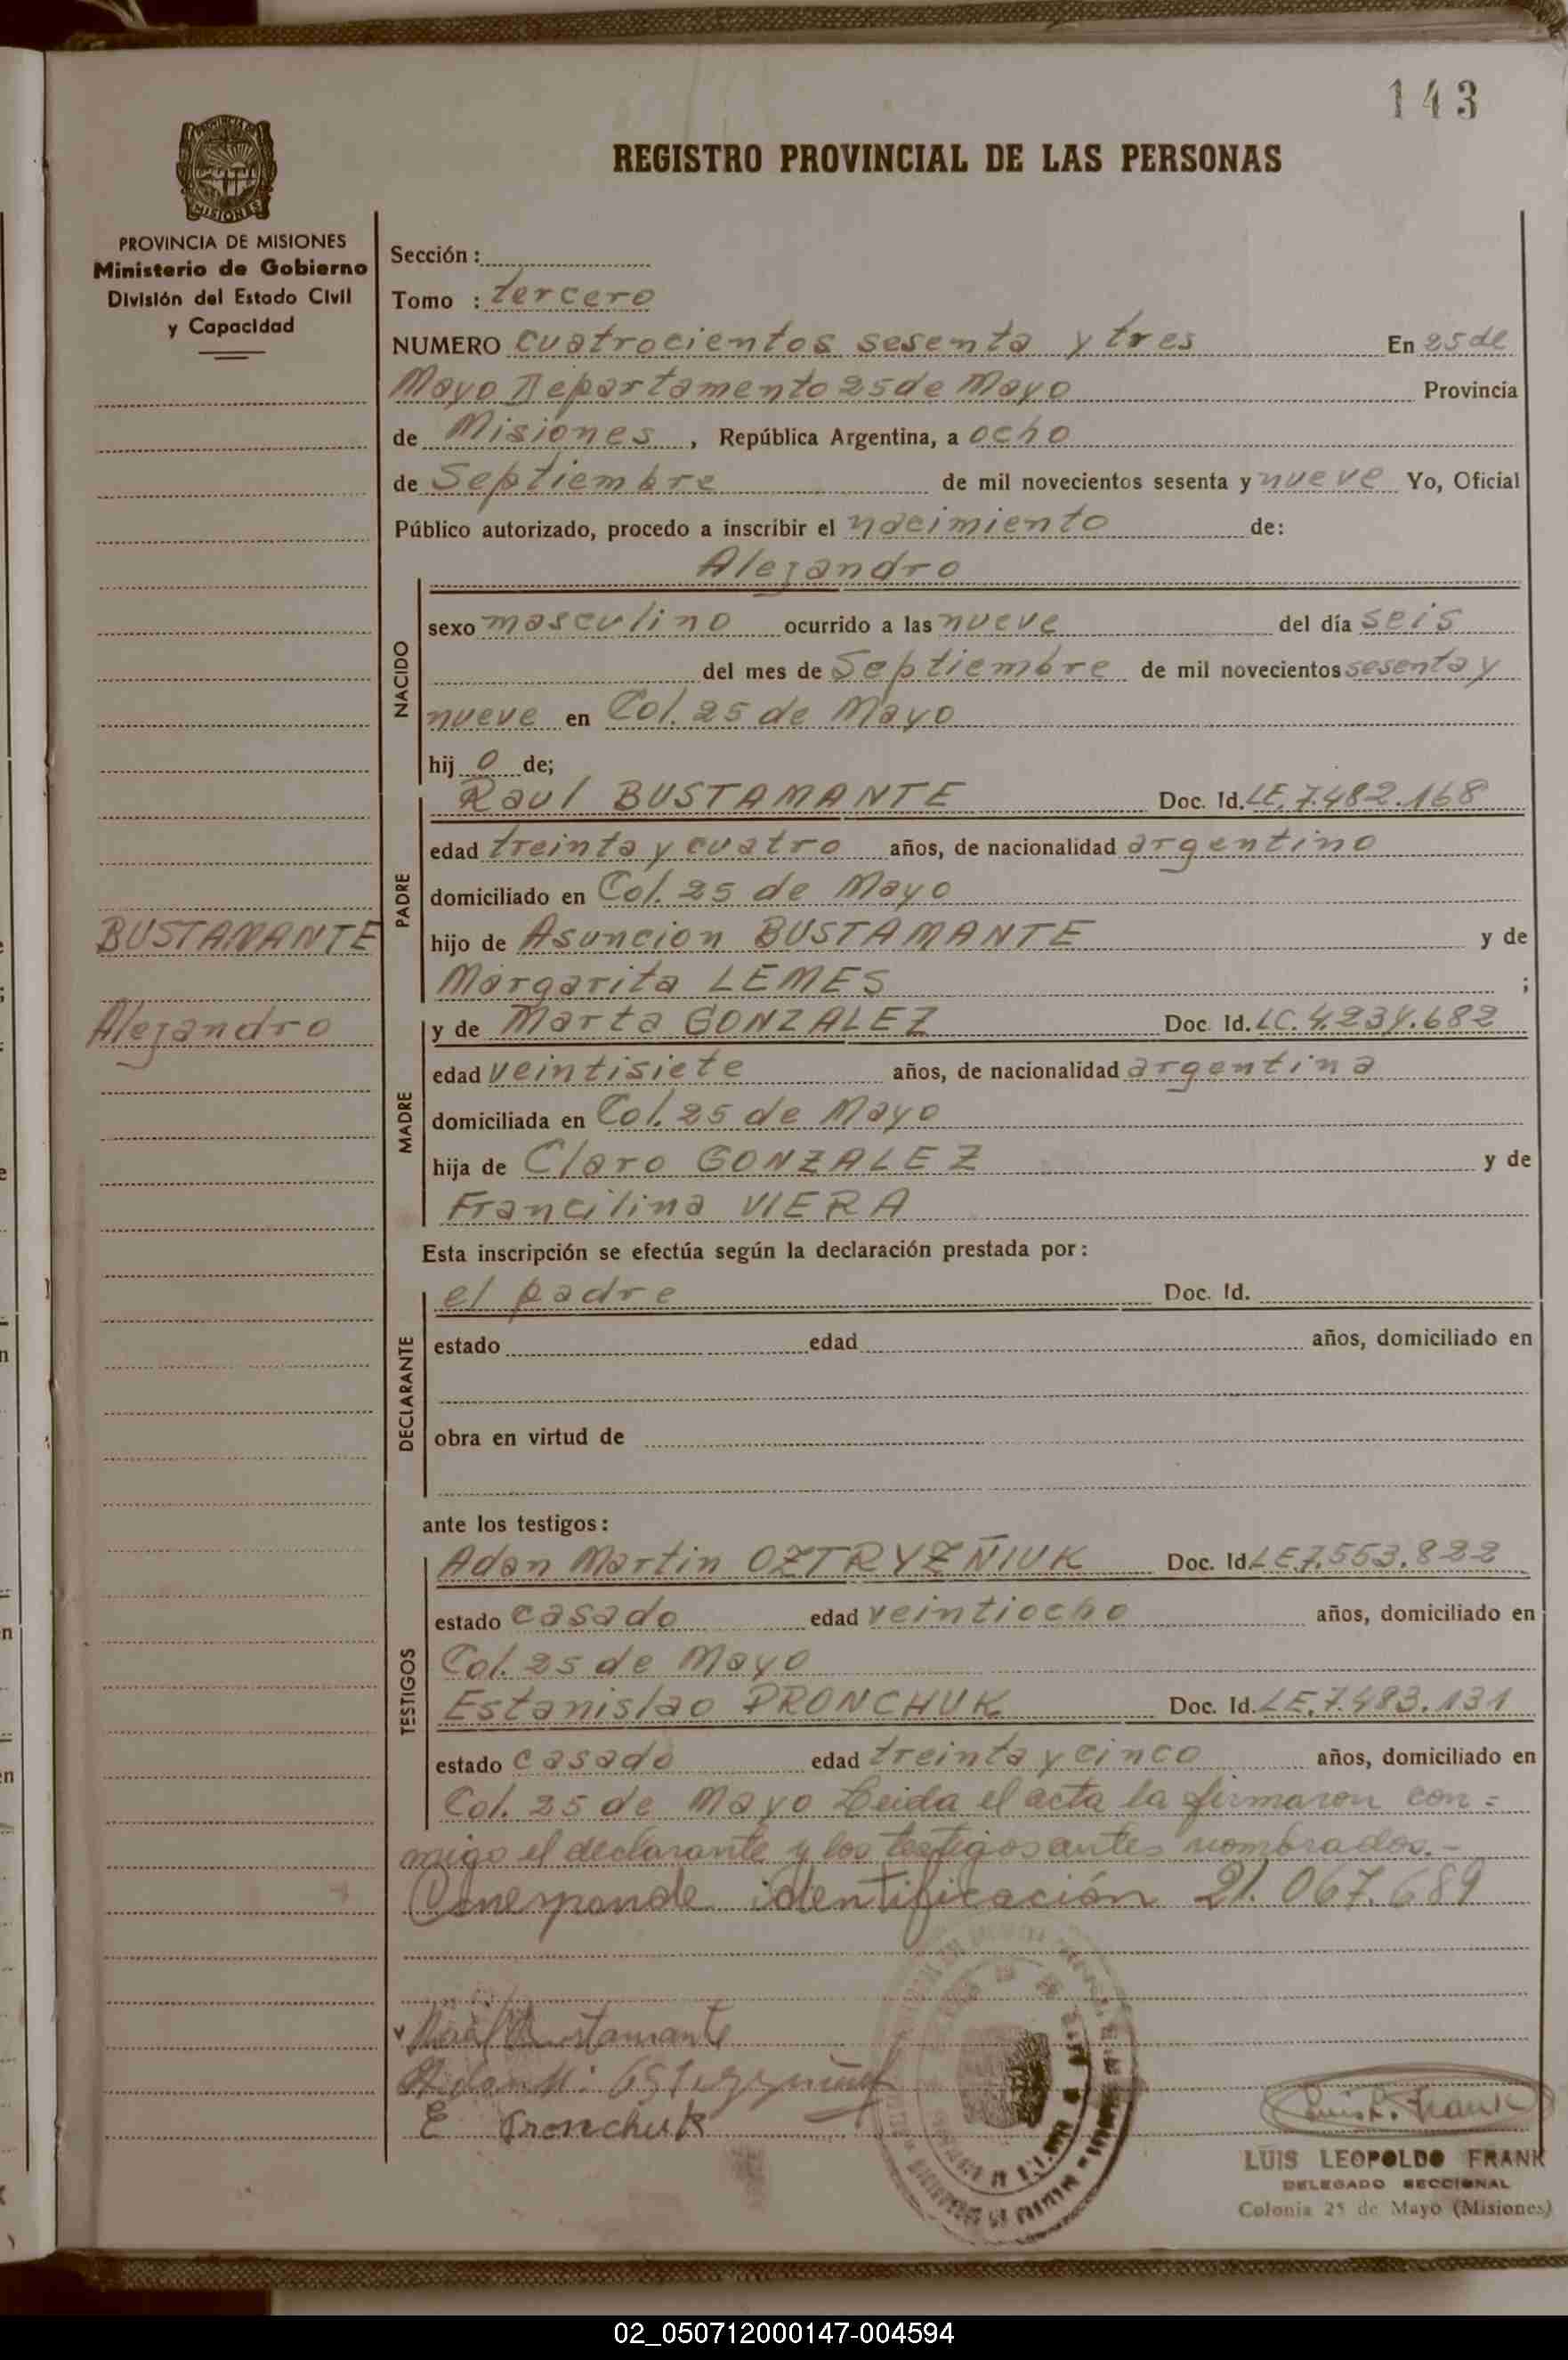 143
REGISTRO PROVINCIAL DE LAS PERSONAS
PROVINCIA DE
MISIONES
PROVINCIA DE MISIONES
Ministerio de Gobierno
División del Estado Civil
y Capacidad
Sección :
Tomo : tercero
NUMERO cuatrocientos sesenta y tres En 25 de
Mayo Departamento 25 de Mayo Provincia
de Misiones, República Argentina, a ocho
de Septiembre de mil novecientos sesenta y nueve Yo, Oficial
Público autorizado, procedo a inscribir el nacimiento de:
Alejandro
NACIDO
sexo masculino ocurrido a las nueve del día seis
del mes de Septiembre de mil novecientos sesenta y
nueve en Col. 25 de Mayo
hij o de;
PADRE
Raul BUSTAMANTE Doc. Id. LE. 7.482.168
edad treinta y cuatro años, de nacionalidad argentino
domiciliado en Col. 25 de Mayo
BUSTAMANTE
hijo de Asuncion BUSTAMANTE y de
Margarita LEMES ;
Alejandro
MADRE
y de Marta GONZALEZ Doc. Id. LC. 4.234.682
edad veintisiete años, de nacionalidad argentina
domiciliada en Col. 25 de Mayo
hija de Claro GONZALEZ y de
Francilina VIERA
Esta inscripción se efectúa según la declaración prestada por:
DECLARANTE
el padre Doc. Id.
estado edad años, domiciliado en
obra en virtud de
ante los testigos:
TESTIGOS
Adan Martin OZTRYZÑIUK Doc. Id. LE 7.553.822
estado casado edad veintiocho años, domiciliado en
Col. 25 de Mayo
Estanislao PRONCHUK Doc. Id. LE. 7.483.131
estado casado edad treinta y cinco años, domiciliado en
Col. 25 de Mayo Leida el acta la firmaron con=
migo el declarante y los testigos antes nombrados.-
Corresponde identificación 21.067.689
Raul Bustamante
E Pronchuk
Luis L. Frank
LUIS LEOPOLDO FRANK
DELEGADO SECCIONAL
Colonia 25 de Mayo (Misiones)
02_050712000147-004594